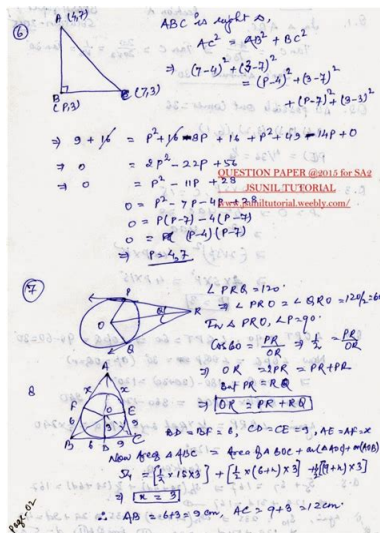 6
A (4,7)
B (P,3)
C (7,3)
ABC is right Δ,
AC² = AB² + BC²
⇒ (7-4)² + (3-7)²
= (P-4)² + (3-7)²
+ (P-7)² + (3-3)²
⇒ 9 + 16 = P² + 16 - 8P + 16 + P² + 49 - 14P + 0
⇒ 0 = 2P² - 22P + 56
⇒ 0 = P² - 11P + 28
0 = P² - 7P - 4P + 28
0 = P(P-7) - 4(P-7)
0 = (P-4)(P-7)
⇒ P = 4,7
QUESTION PAPER @2015 for SA2
JSUNIL TUTORIAL
www.jsuniltutorial.weebly.com/
7
P
O
Q
R
∠ PRQ = 120°
⇒ ∠ PRO = ∠ QRO = 120/2 = 60
In Δ PRO, ∠P = 90°
Cos 60 = PR/OR ⇒ 1/2 = PR/OR
⇒ OR = 2PR = PR + PR
But PR = RQ
⇒ OR = PR + RQ
8
A
x x
F E
O
6 3 9
B 6 D 9 C
BD = BF = 6, CD = CE = 9, AE = AF = x
Now Area Δ ABC = Area of Δ BOC + ar(Δ AOC) + ar(AOB)
54 = [1/2 × 15 × 3] + [1/2 × (6+x) × 3] + 1/2 [(9+x) × 3]
⇒ x = 3
∴ AB = 6+3 = 9 cm, AC = 9+3 = 12 cm
Page-02